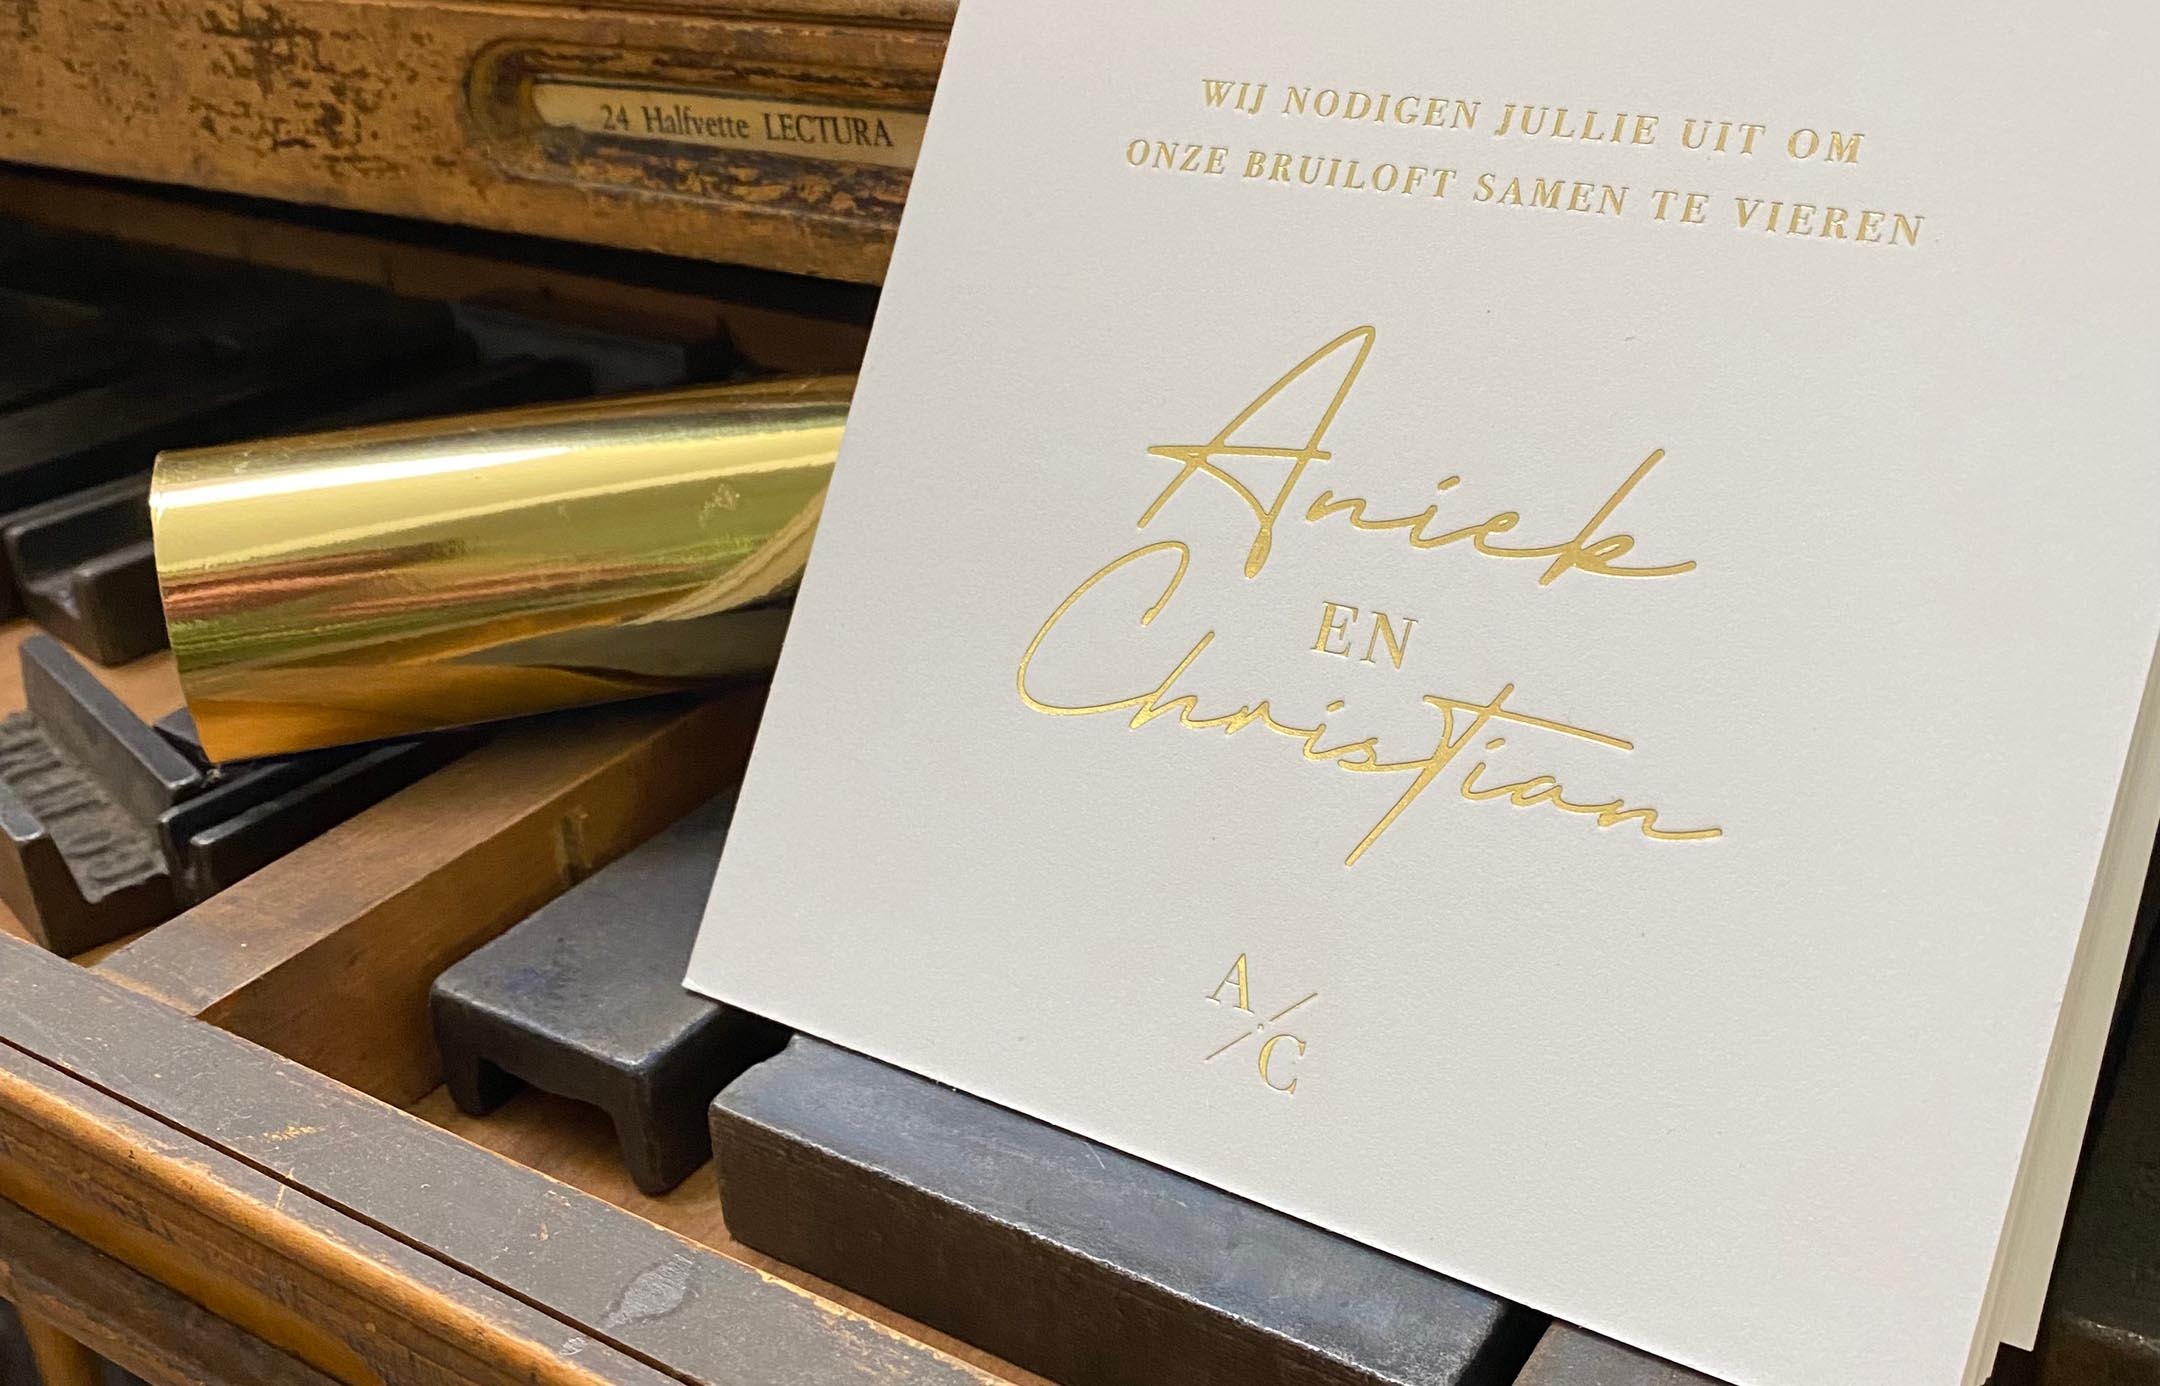 24 Halfvette LECTURA
WIJ NODIGEN JULLIE UIT OM
ONZE BRUILOFT SAMEN TE VIEREN
Aniek
EN
Christian
A
C